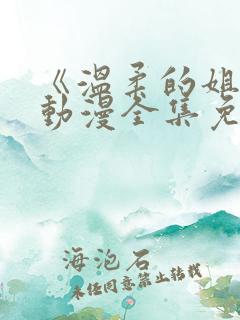 《温柔的姐
动漫全集免
海泡石
未经同意禁止转载